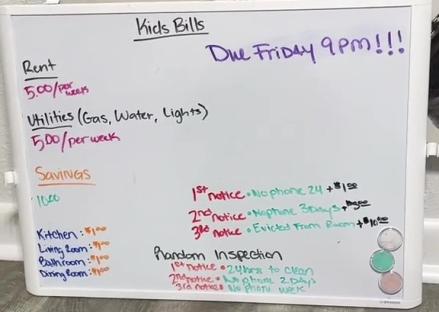 Kids Bills
Due Friday 9pm!!!
Rent
5.00/per week
Utilities (Gas, Water, Lights)
5.00/per week
Savings
10.00
1st notice • No phone 24 + $1.00
2nd notice • No phone 3 Days +
3rd notice • Evicted From Room + $10.00
Kitchen: $1.00
Living Room: $1.00
Bathroom: $1.00
Dining Room: $1.00
Random Inspection
1st notice • 24hrs to clean
2nd notice • No phone 2 Days
3rd notice • No phone week